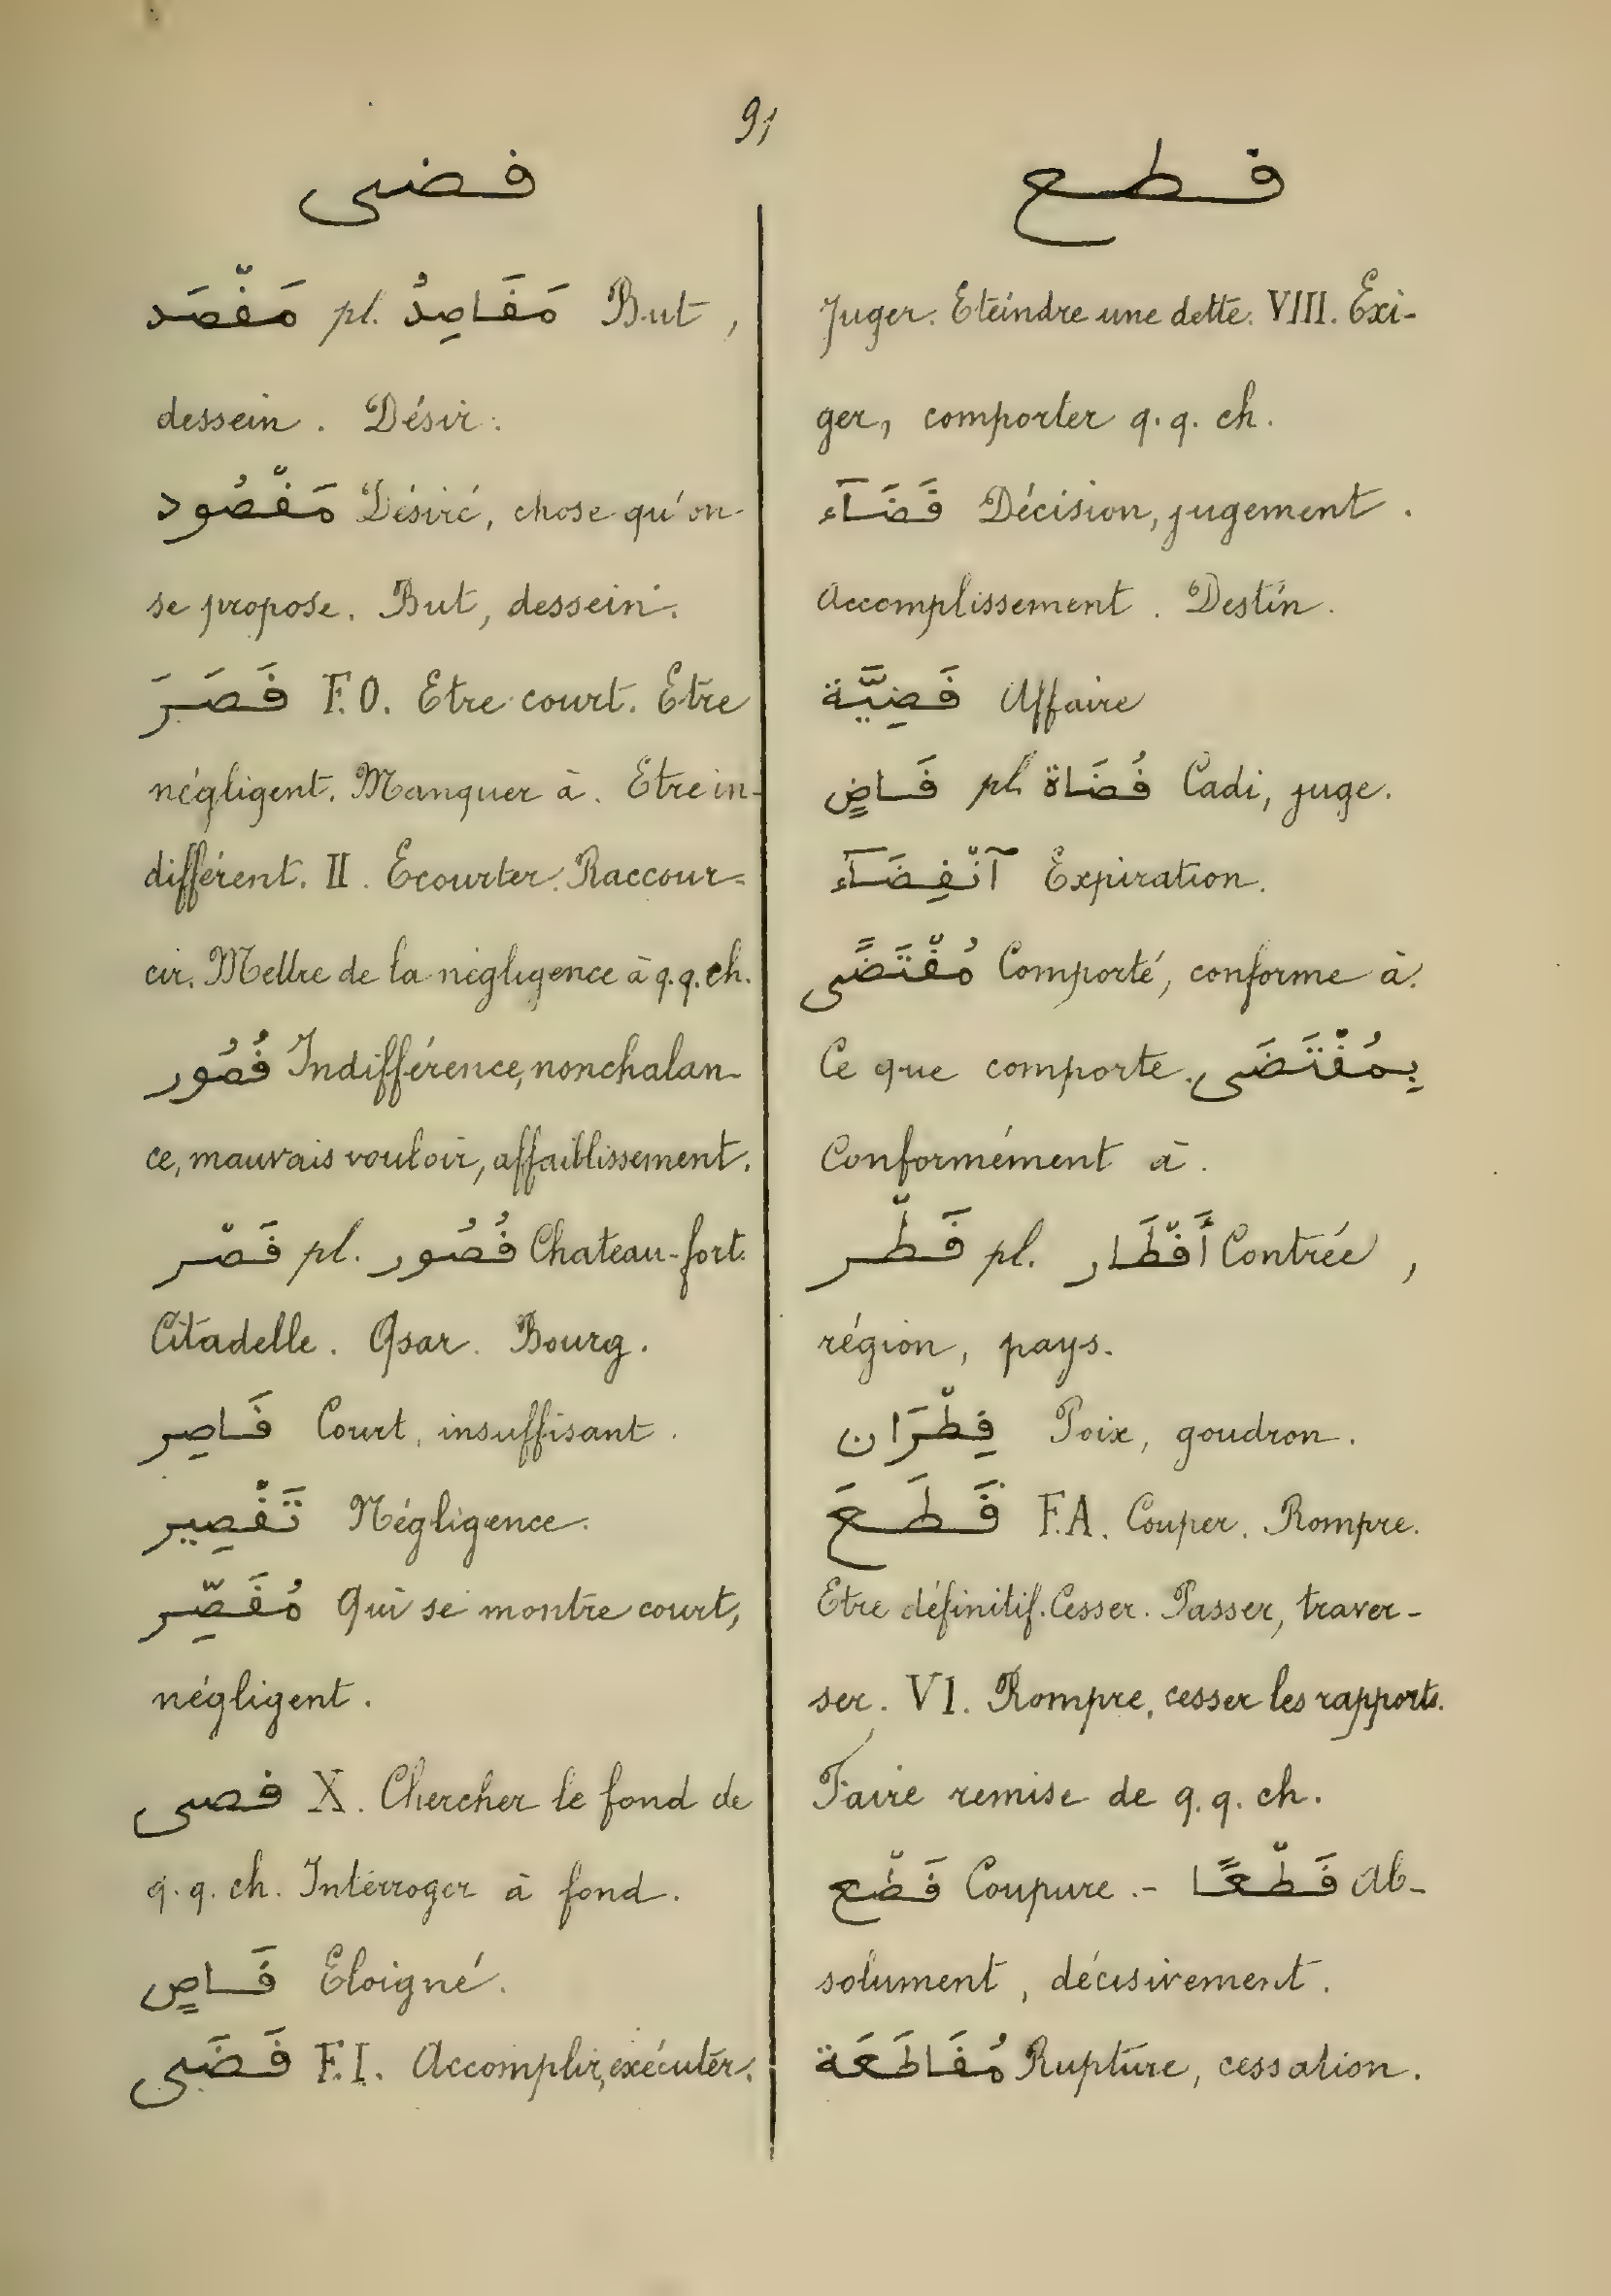 91
قضى
مَقْصَد pl. مَقَاصِدُ But,
dessein. Désir.
مَقْصُود Désiré, chose qu'on
se propose. But, dessein.
قَصَرَ F.O. Etre court. Etre
négligent. Manquer à. Etre in-
différent. II. Ecourter. Raccour-
cir. Mettre de la négligence à q.q.ch.
قُصُور Indifférence, nonchalan-
ce, mauvais vouloir, affaiblissement.
قَصْر pl. قُصُور Chateau-fort.
Citadelle. Qsar. Bourg.
قَاصِر Court, insuffisant.
تَقْصِير Négligence.
مُقَصِّر Qui se montre court,
négligent.
قصى X. Chercher le fond de
q.q.ch. Intérroger à fond.
قَاصٍ Eloigné.
قَضَى F.I. Accomplir, exécuter.
قطع
Juger. Eteindre une dette. VIII. Exi-
ger, comporter q.q. ch.
قَضَآء Décision, jugement.
Accomplissement. Destin.
قَضِيَّة Affaire
قَاضٍ pl. قُضَاة Cadi, juge.
آنْقِضَآء Expiration.
مُقْتَضًى Comporté, conforme à.
Ce que comporte. بِمُقْتَضَى
Conformément à.
قَطْر pl. أَقْطَار Contrée,
région, pays.
قِطْرَان Poix, goudron.
قَطَعَ F.A. Couper. Rompre.
Etre définitif. Cesser. Passer, traver-
ser. VI. Rompre, cesser les rapports.
Faire remise de q.q. ch.
قَطْع Coupure.- قَطْعًا Ab-
solument, décisivement.
مُقَاطَعَة Rupture, cessation.